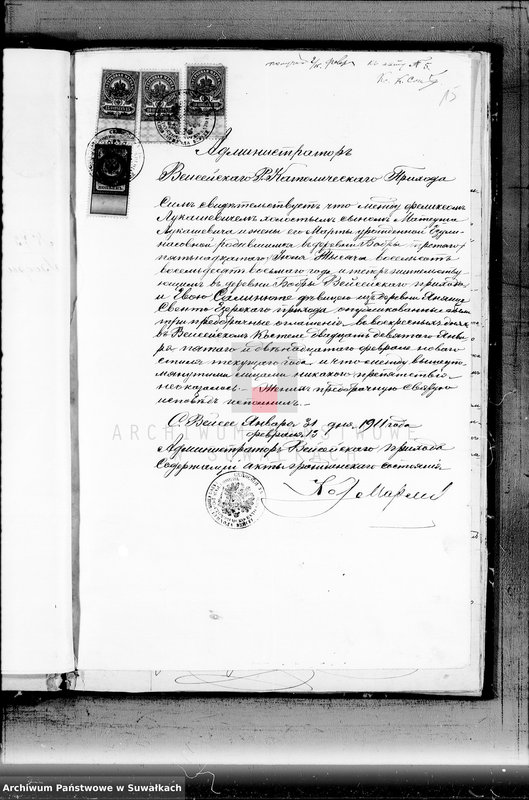 Администраторъ
Вейсейскаго Р. Католическаго Прихода
Симъ свидѣтельствуетъ что между Феликсомъ
Лукашевичемъ холостымъ сыномъ Матеуша
Лукашевича и жены его Марты урожденной
родившимся въ деревни Бобры третьяго
пятнадцатаго Іюня тысяча восемьсотъ
восемьдесятъ восьмаго года и теперь жительству
ющимъ въ деревни Бобры Вейсейскаго прихода
и Евою дѣвицею изъ деревни
Свенто Езерскаго прихода опубликованные были
три предбрачные оглашенія въ воскресныхъ дняхъ
въ Вейсейскомъ Костелѣ двадцать девятаго Янва
ря пятаго и двѣнадцатаго февраля новаго
стиля текущаго года и что между вышеупо
мянутыми лицами никакого препятствія
не оказалось. Женихъ предбрачную святую
исповѣдь исполнилъ.
С. Вейсее Января 31 дня 1911 года
февраля 13
Администраторъ Вейсейскаго прихода
Содержащій акты гражданскаго состоянія
ARCHIWUM PAŃSTWOWE
W SUWAŁKACH
Archiwum Państwowe w Suwałkach